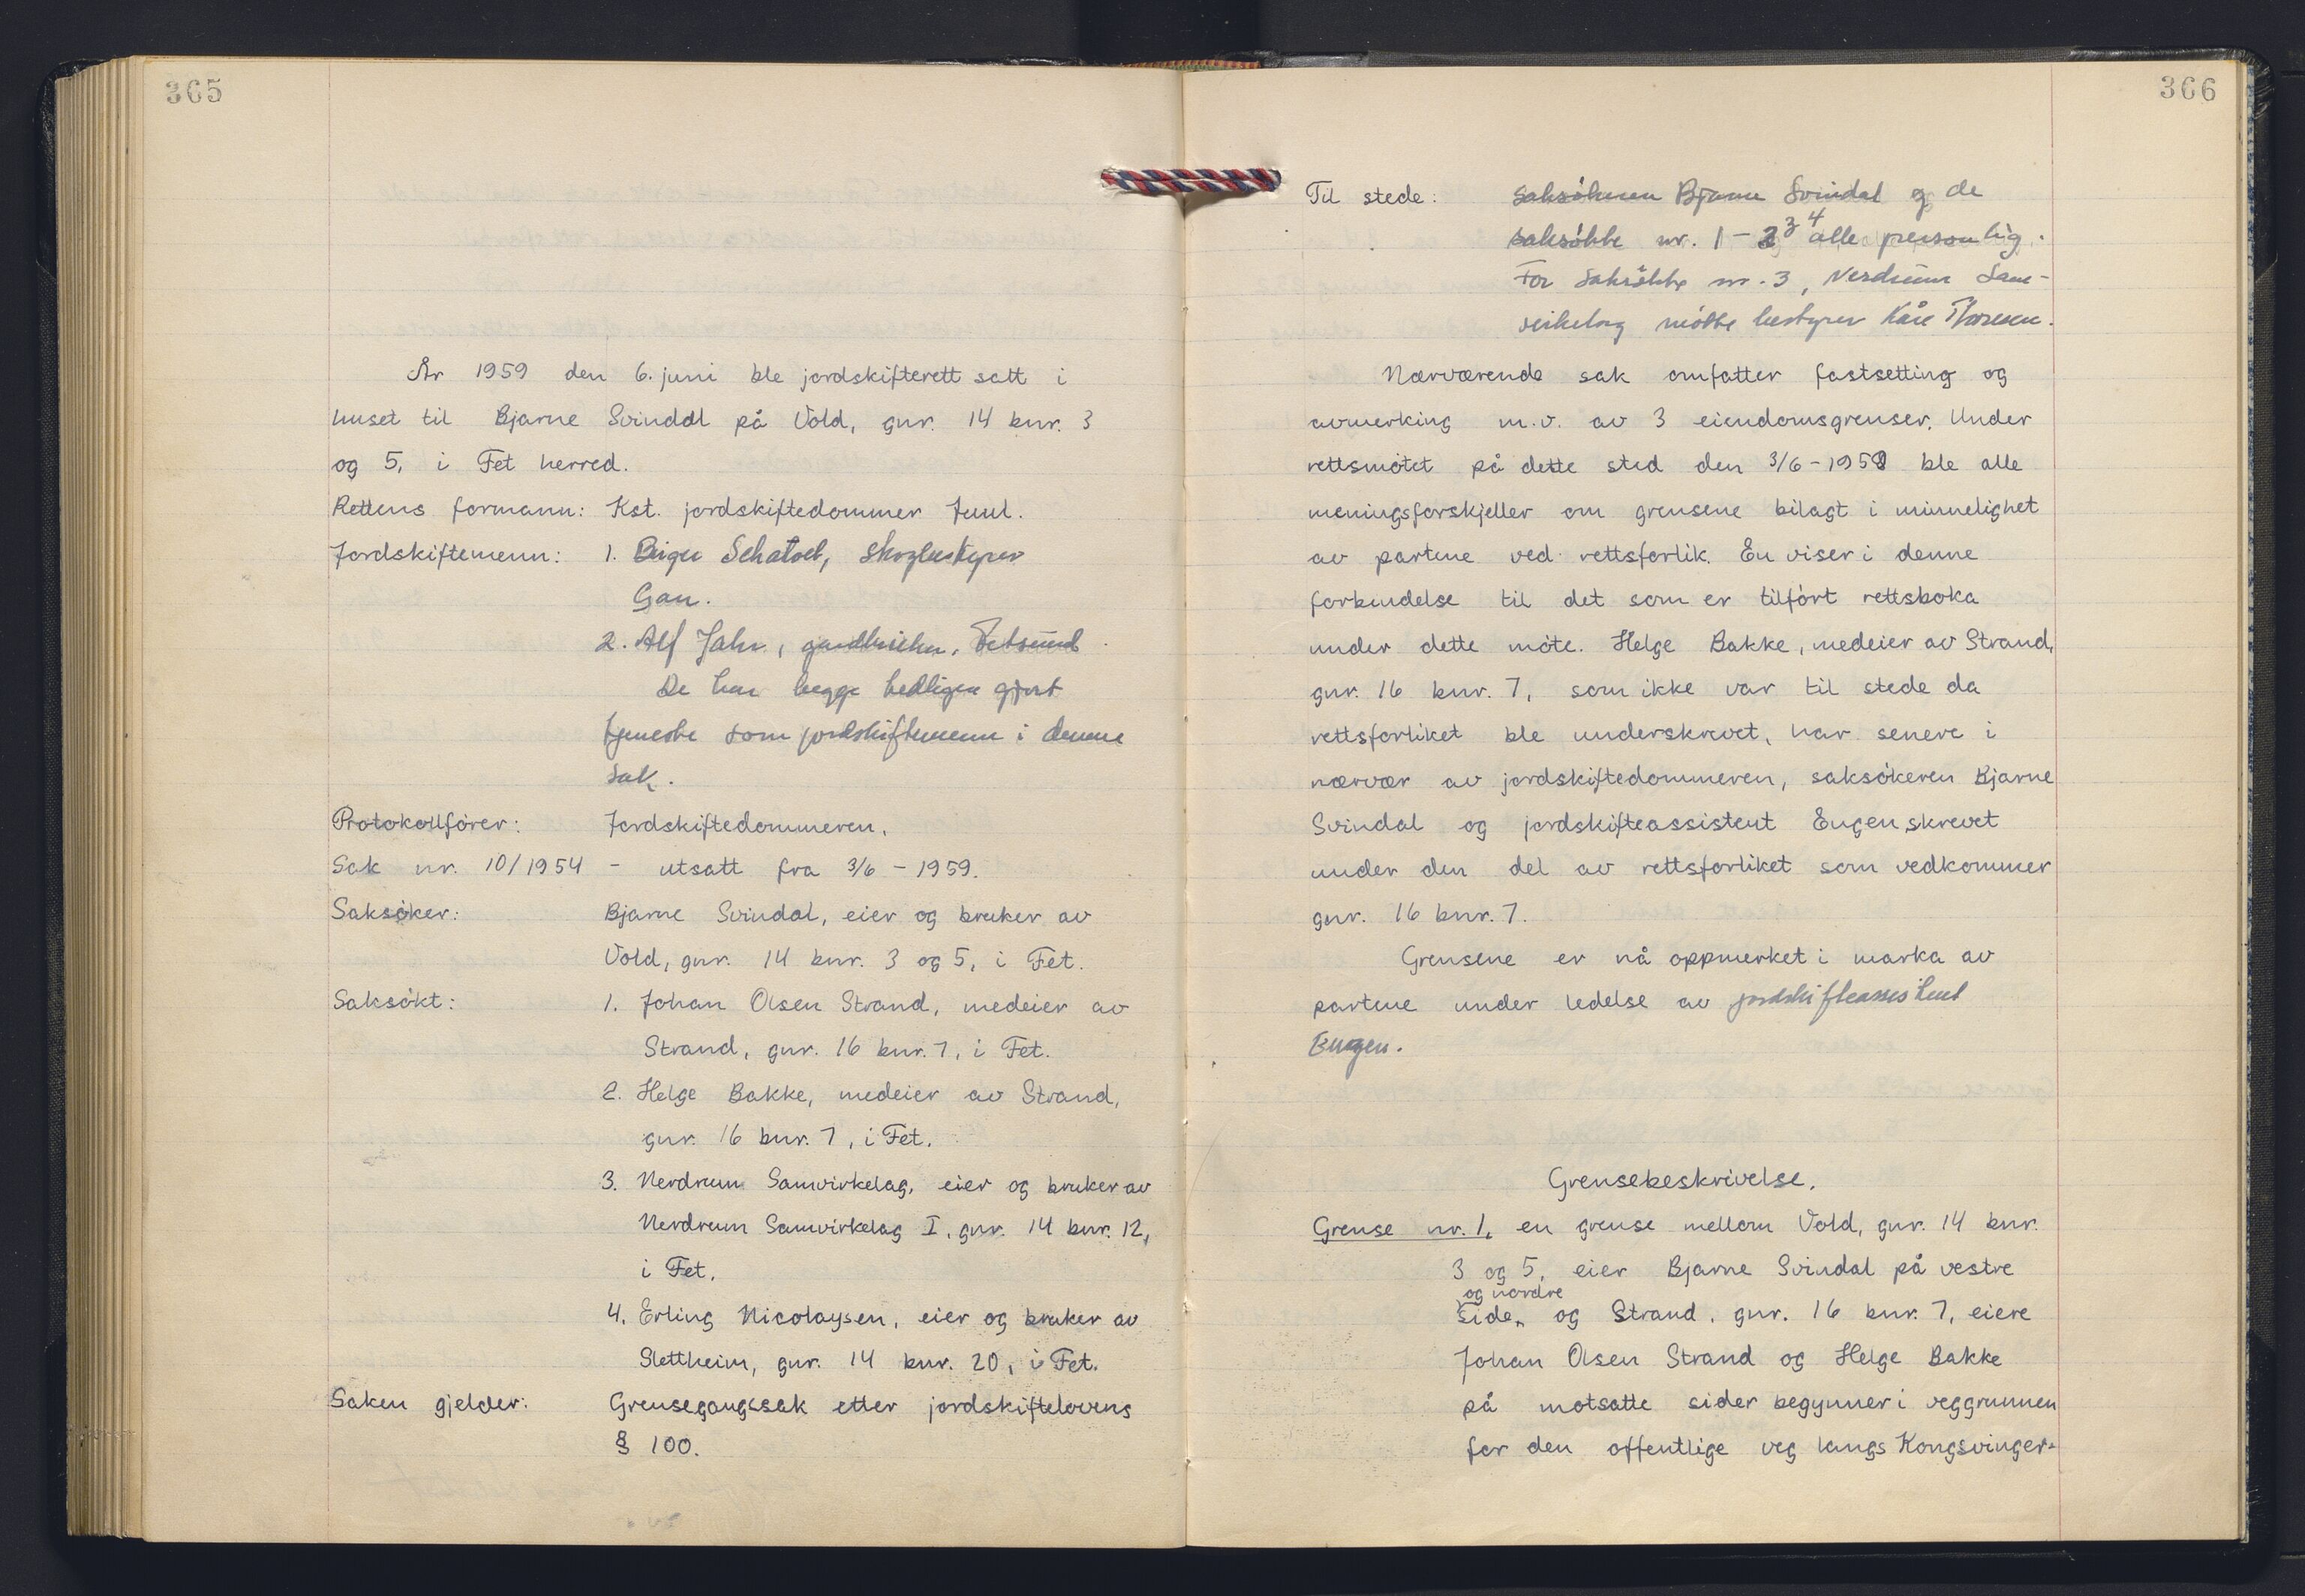 365
År 1959 den 6. juni ble jordskifterett satt i
huset til Bjarne Svindal på Vold, gnr. 14 bnr. 3
og 5, i Fet herred.
Rettens formann: Kst. jordskiftedommer Juul.
Jordskiftemenn: 1. Birger Schatvet, skogbestyrer
Gan.
2. Alf Jahr, gardbruker, Fetsund.
De har begge tidligere gjort
tjeneste som jordskiftemenn i denne
sak.
Protokollfører: Jordskiftedommeren.
Sak nr. 10/1954 - utsatt fra 3/6 - 1959.
Saksøker: Bjarne Svindal, eier og bruker av
Vold, gnr. 14 bnr. 3 og 5, i Fet.
Saksøkt: 1. Johan Olsen Strand, medeier av
Strand, gnr. 16 bnr. 7, i Fet.
2. Helge Bakke, medeier av Strand,
gnr. 16 bnr. 7, i Fet.
3. Nerdrum Samvirkelag, eier og bruker av
Nerdrum Samvirkelag I, gnr. 14 bnr. 12,
i Fet.
4. Erling Nicolaysen, eier og bruker av
Slettheim, gnr. 14 bnr. 20, i Fet.
Saken gjelder: Grensegangssak etter jordskiftelovens
§ 100.
366
Til stede: Saksøkeren Bjarne Svindal og de
saksøkte nr. 1 - 2 3 4 alle personlig.
For saksøkte nr. 3, Nerdrum Sam-
virkelag møtte bestyrer Kåre Thoresen.
Nærværende sak omfatter fastsetting og
avmerking m.v. av 3 eiendomsgrenser. Under
rettsmøtet på dette sted den 3/6 - 1958 ble alle
meningsforskjeller om grensene bilagt i minnelighet
av partene ved rettsforlik. En viser i denne
forbindelse til det som er tilført rettsboka
under dette møte. Helge Bakke, medeier av Strand,
gnr. 16 bnr. 7, som ikke var til stede da
rettsforliket ble underskrevet, har senere i
nærvær av jordskiftedommeren, saksøkeren Bjarne
Svindal og jordskifteassistent Eugen, skrevet
under den del av rettsforliket som vedkommer
gnr. 16 bnr. 7.
Grensene er nå oppmerket i marka av
partene under ledelse av jordskifteassistent
Eugen.
Grensebeskrivelse.
Grense nr. 1, en grense mellom Vold, gnr. 14 bnr.
3 og 5, eier Bjarne Svindal på vestre
og nordre
side, og Strand, gnr. 16 bnr. 7, eiere
Johan Olsen Strand og Helge Bakke
på motsatte sider begynner i veggrunnen
for den offentlige veg langs Kongsvinger-